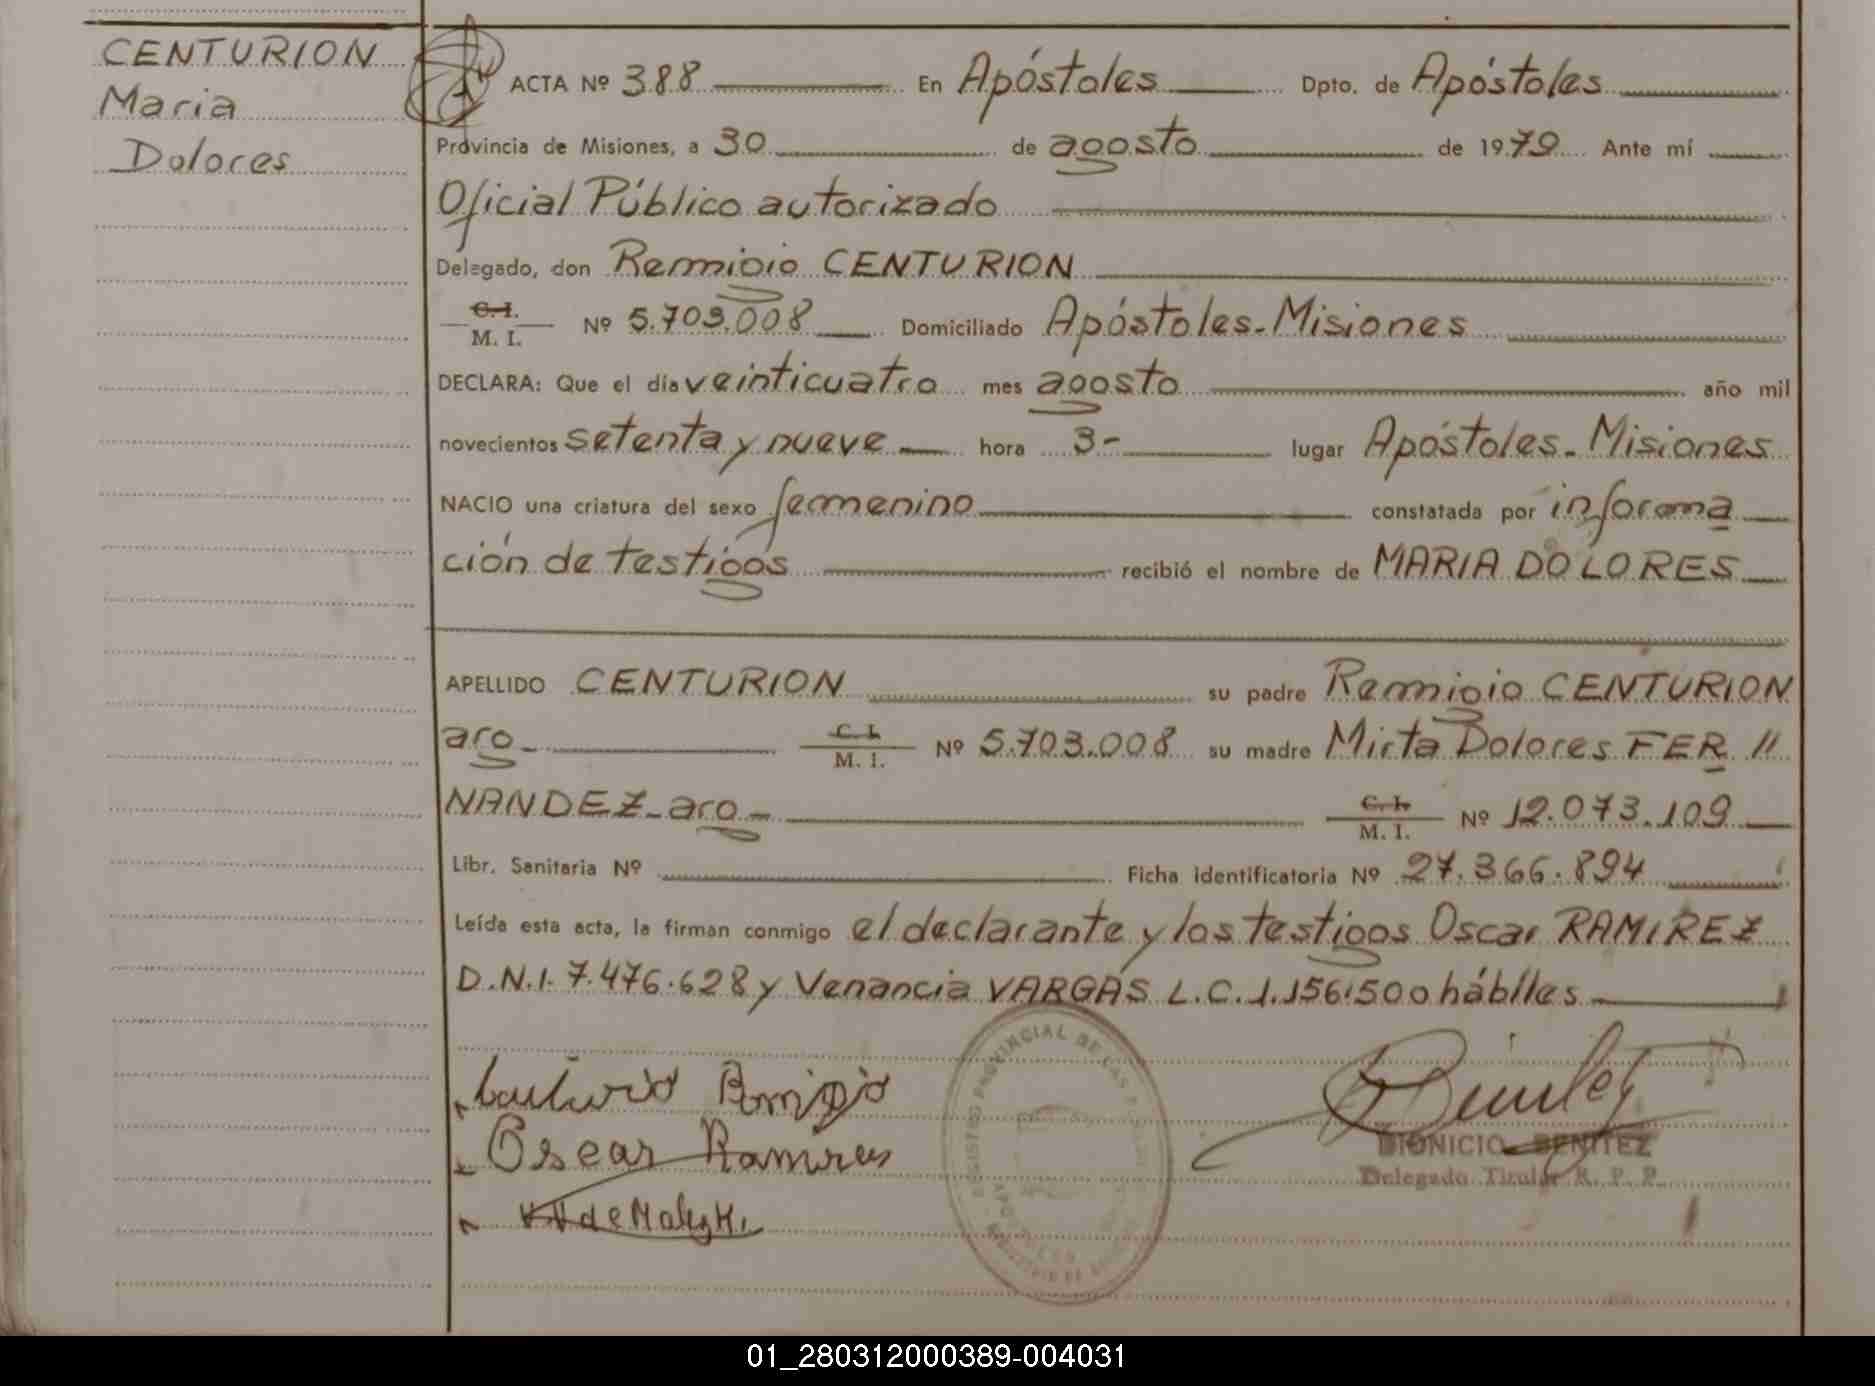 CENTURION
Maria
Dolores
ACTA Nº 388 En Apóstoles Dpto. de Apóstoles
Provincia de Misiones, a 30 de agosto de 1979 Ante mí
Oficial Público autorizado
Delegado, don Remigio CENTURION
C.I.
M. I. Nº 5.703.008 Domiciliado Apóstoles-Misiones
DECLARA: Que el día veinticuatro mes agosto año mil
novecientos setenta y nueve hora 3- lugar Apóstoles-Misiones
NACIO una criatura del sexo femenino constatada por informa
ción de testigos recibió el nombre de MARIA DOLORES
APELLIDO CENTURION su padre Remigio CENTURION
arg- C.I.
M. I. Nº 5.703.008 su madre Mirta Dolores FER //
NANDEZ-arg- C.I.
M. I. Nº 12.073.109
Libr. Sanitaria Nº Ficha identificatoria Nº 27.366.894
Leída esta acta, la firman conmigo el declarante y los testigos Oscar RAMIREZ
D.N.I. 7.476.628 y Venancia VARGAS L.C. 1.156.500 hábiles
Oscar Ramires
REGISTRO PROVINCIAL DE LAS
DIONICIO BENITEZ
Delegado Titular R. P. P.
01_280312000389-004031